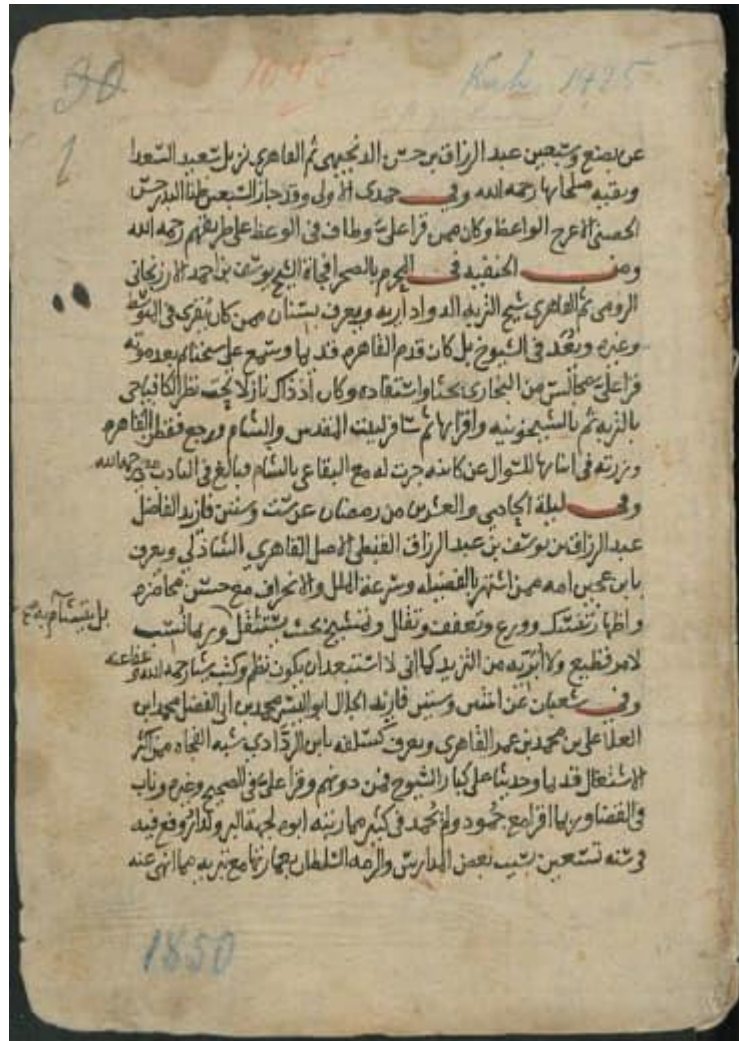 90
1045
Kat. 1425
1
عن بضع وسبعين عبد الرزاق بن حسن الدنجيهى ثم القاهرى نزيل سعيد السعدا
وبقية صلحائها رحمه الله وفى جمدى الاولى وقد جاز السبعين ظنا البدر حسن
الحسنى الاعرج الواعظ وكان ممن قرا على وطاف فى الوعظ على طريقتهم رحمه الله
ومن الحنفيه فى المحرم بالصحرا فجاة الشيخ يوسف بن احمد الارزنجانى
الرومى ثم القاهرى شيخ التربه الدواداريه ويعرف بسنان ممن كان يقرى فى
وغيره ويعد فى الشيوخ بل كان قدم القاهره قديما وسمع على شيخنا ثم بعد موته
قرا على مجالس من البخارى بحثا واستفاده وكان اذ ذاك نازلا تحت نظر الكافياجى
بالتربه ثم بالشيخونيه واقرا بها ثم سافر لبيت المقدس والشام ورجع فقطن القاهره
وزرته فى اثنائها للسوال عن كائنه جرت له مع البقاعى بالشام فبالغ فى التادب رحمه الله
وفى ليلة الحادى والعشرين من رمضان عن ست وستين فازيد الفاضل
عبد الرزاق بن يوسف بن عبد الرزاق القبطى الاصل القاهرى الشاذلى ويعرف
بابن عجين امه ممن اشتهر بالفضيله وسرعة الملل والانحراف مع حسن محاضره
واظهار تنسك وورع وتعفف وتقلل وتمشيخ بحيث يستثقل وربما نسب
بل يتشام به
لامر فظيع ولا ابريه من التزيد كما انى لا استبعد ان يكون نظم وكتب شيا رحمه الله وعفا عنه
وفى شعبان عن اثنتين وستين فازيد الجلال ابو اليسر محمد بن ابى الفضل محمد ابن
العلا على بن محمد بن عمر القاهرى ويعرف كسلفه بابن الردادى شبه الفجاه ممن اكثر
الاشتغال قديما وحديثا على كبار الشيوخ فمن دونهم وقرا على فى الصحيح وغيره وناب
فى القضا وربما اقرا مع جمود ولم يحمد فى كثير مما رتبه ابوه لجهة البر ولذا ترافع فيه
فى سنه تسعين بسبب بعض المدارس والزمه السلطان بعمارتها مع تربه مما انهى عنه
1850